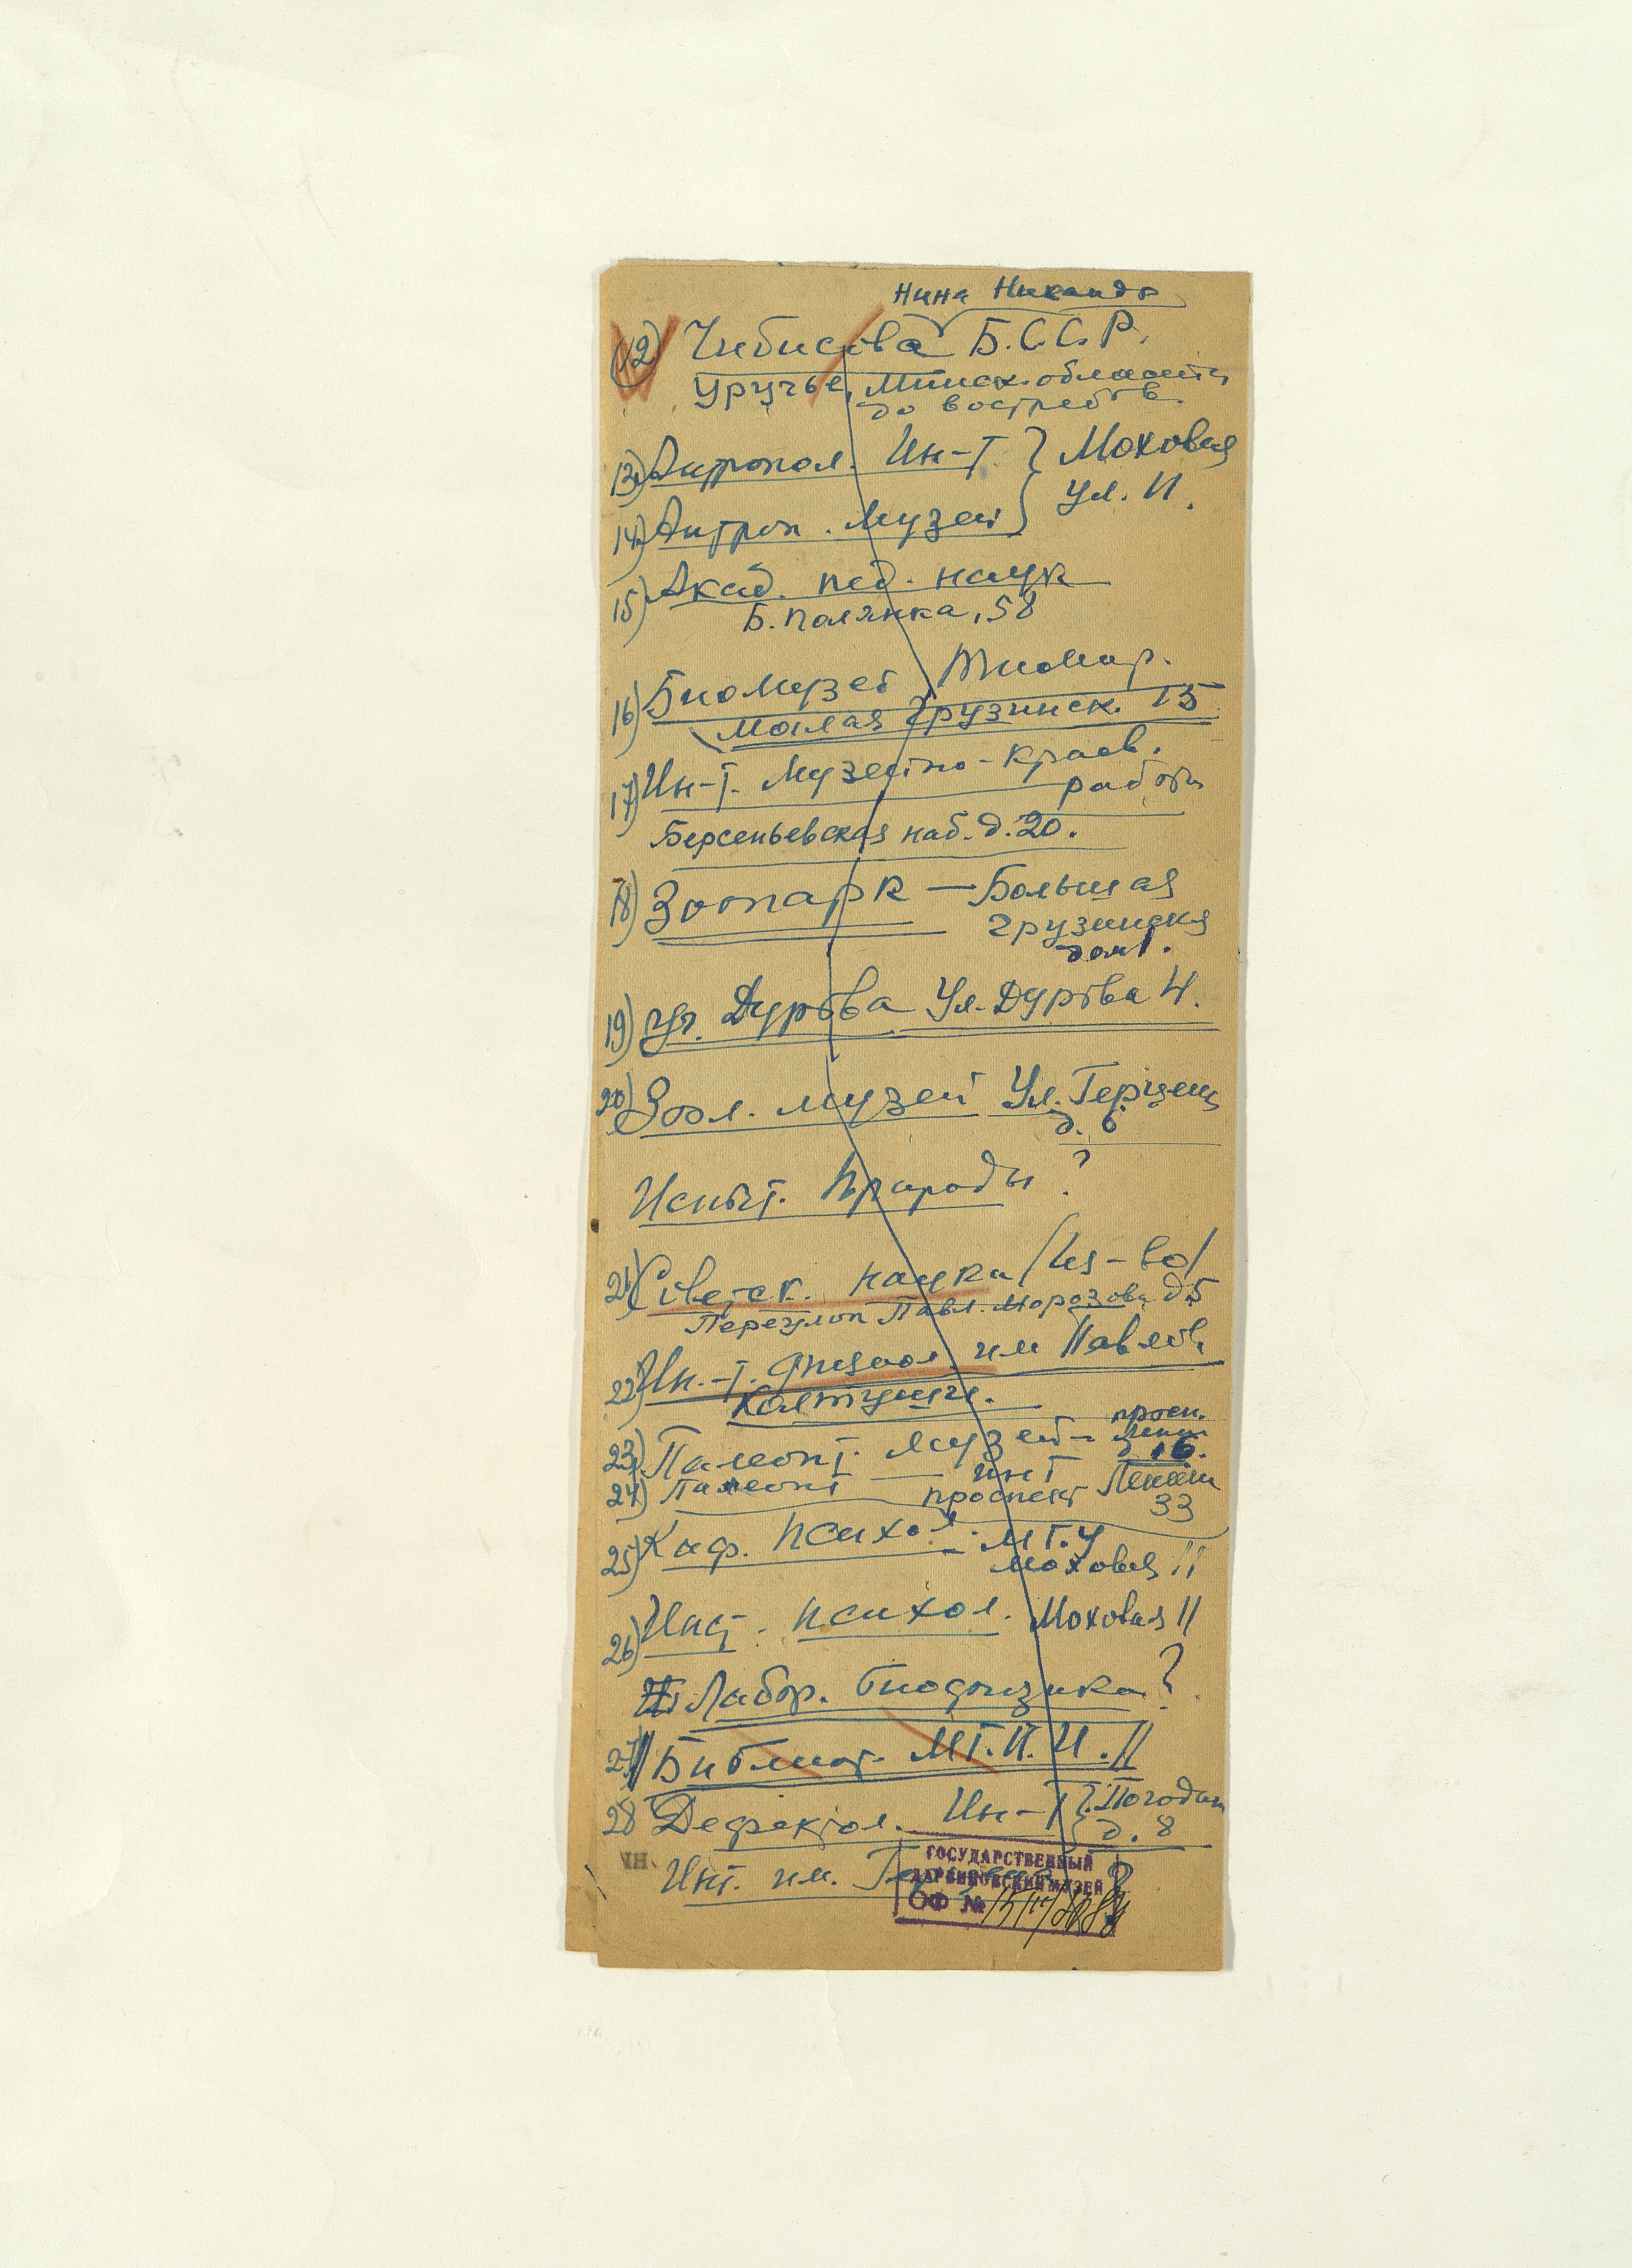 Нина Никандр
12) Чибисова Б.С.С.Р.
Уручье, Минск. области
до востребов.
13) Антропол. Ин-т. } Моховая
14) Антроп. Музей } ул. 11.
15) Акад. пед. наук
Б. Полянка, 58
16) Биомузей Тимир.
Малая Грузинск. 15
17) Ин-т. Музейно-краев.
работы
Берсеньевская наб. д. 20.
18) Зоопарк — Большая
Грузинская
дом 1.
19) уг. Дурова Ул. Дурова 4.
20) Зоол. музей Ул. Герцена
д. 6
Испыт. Природы ?
21) Советск. наука /Из-во/
Переулок Павл. Морозова д 5
22) Ин.-т. физиол. им Павлова
Колтуши.
23) Палеонт. Музей - просп.
Ленина
д 16.
24) Палеонт — инт
проспект Ленина
33
25) Каф. Психол. - МГУ
Моховая 11
26) Инст. психол. Моховая 11
Лабор. биофизика ?
27) Библиот. М.Г.П.И.
28 Дефектол. Ин-т } Погодин
д. 8
Инт. им.
ГОСУДАРСТВЕННЫЙ
ДАРВИНОВСКИЙ МУЗЕЙ
ОФ №